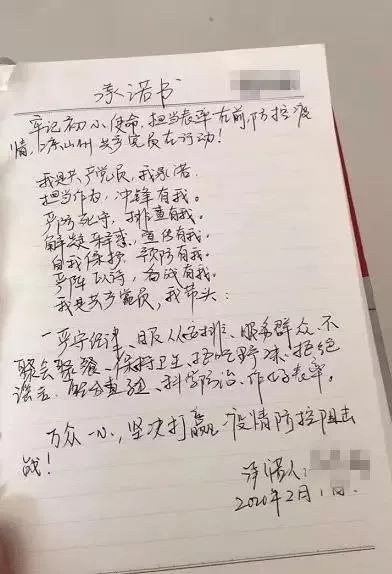 承诺书
牢记初心使命,担当表率在前,防控疫
情,凉山州共产党员在行动!
我是共产党员,我承诺:
担当作为,冲锋有我。
严防死守,排查有我。
解疑释惑,宣传有我。
自我保护,预防有我。
严阵以待,奋战有我。
我是共产党员,我带头:
严守纪律、服从安排、服务群众、不
聚会聚餐、保持卫生、拒吃野味、拒绝
谣言、配合查验、科学防治、作好表率。
万众一心,坚决打赢疫情防控阻击
战!
承诺人:
2020年2月1日.